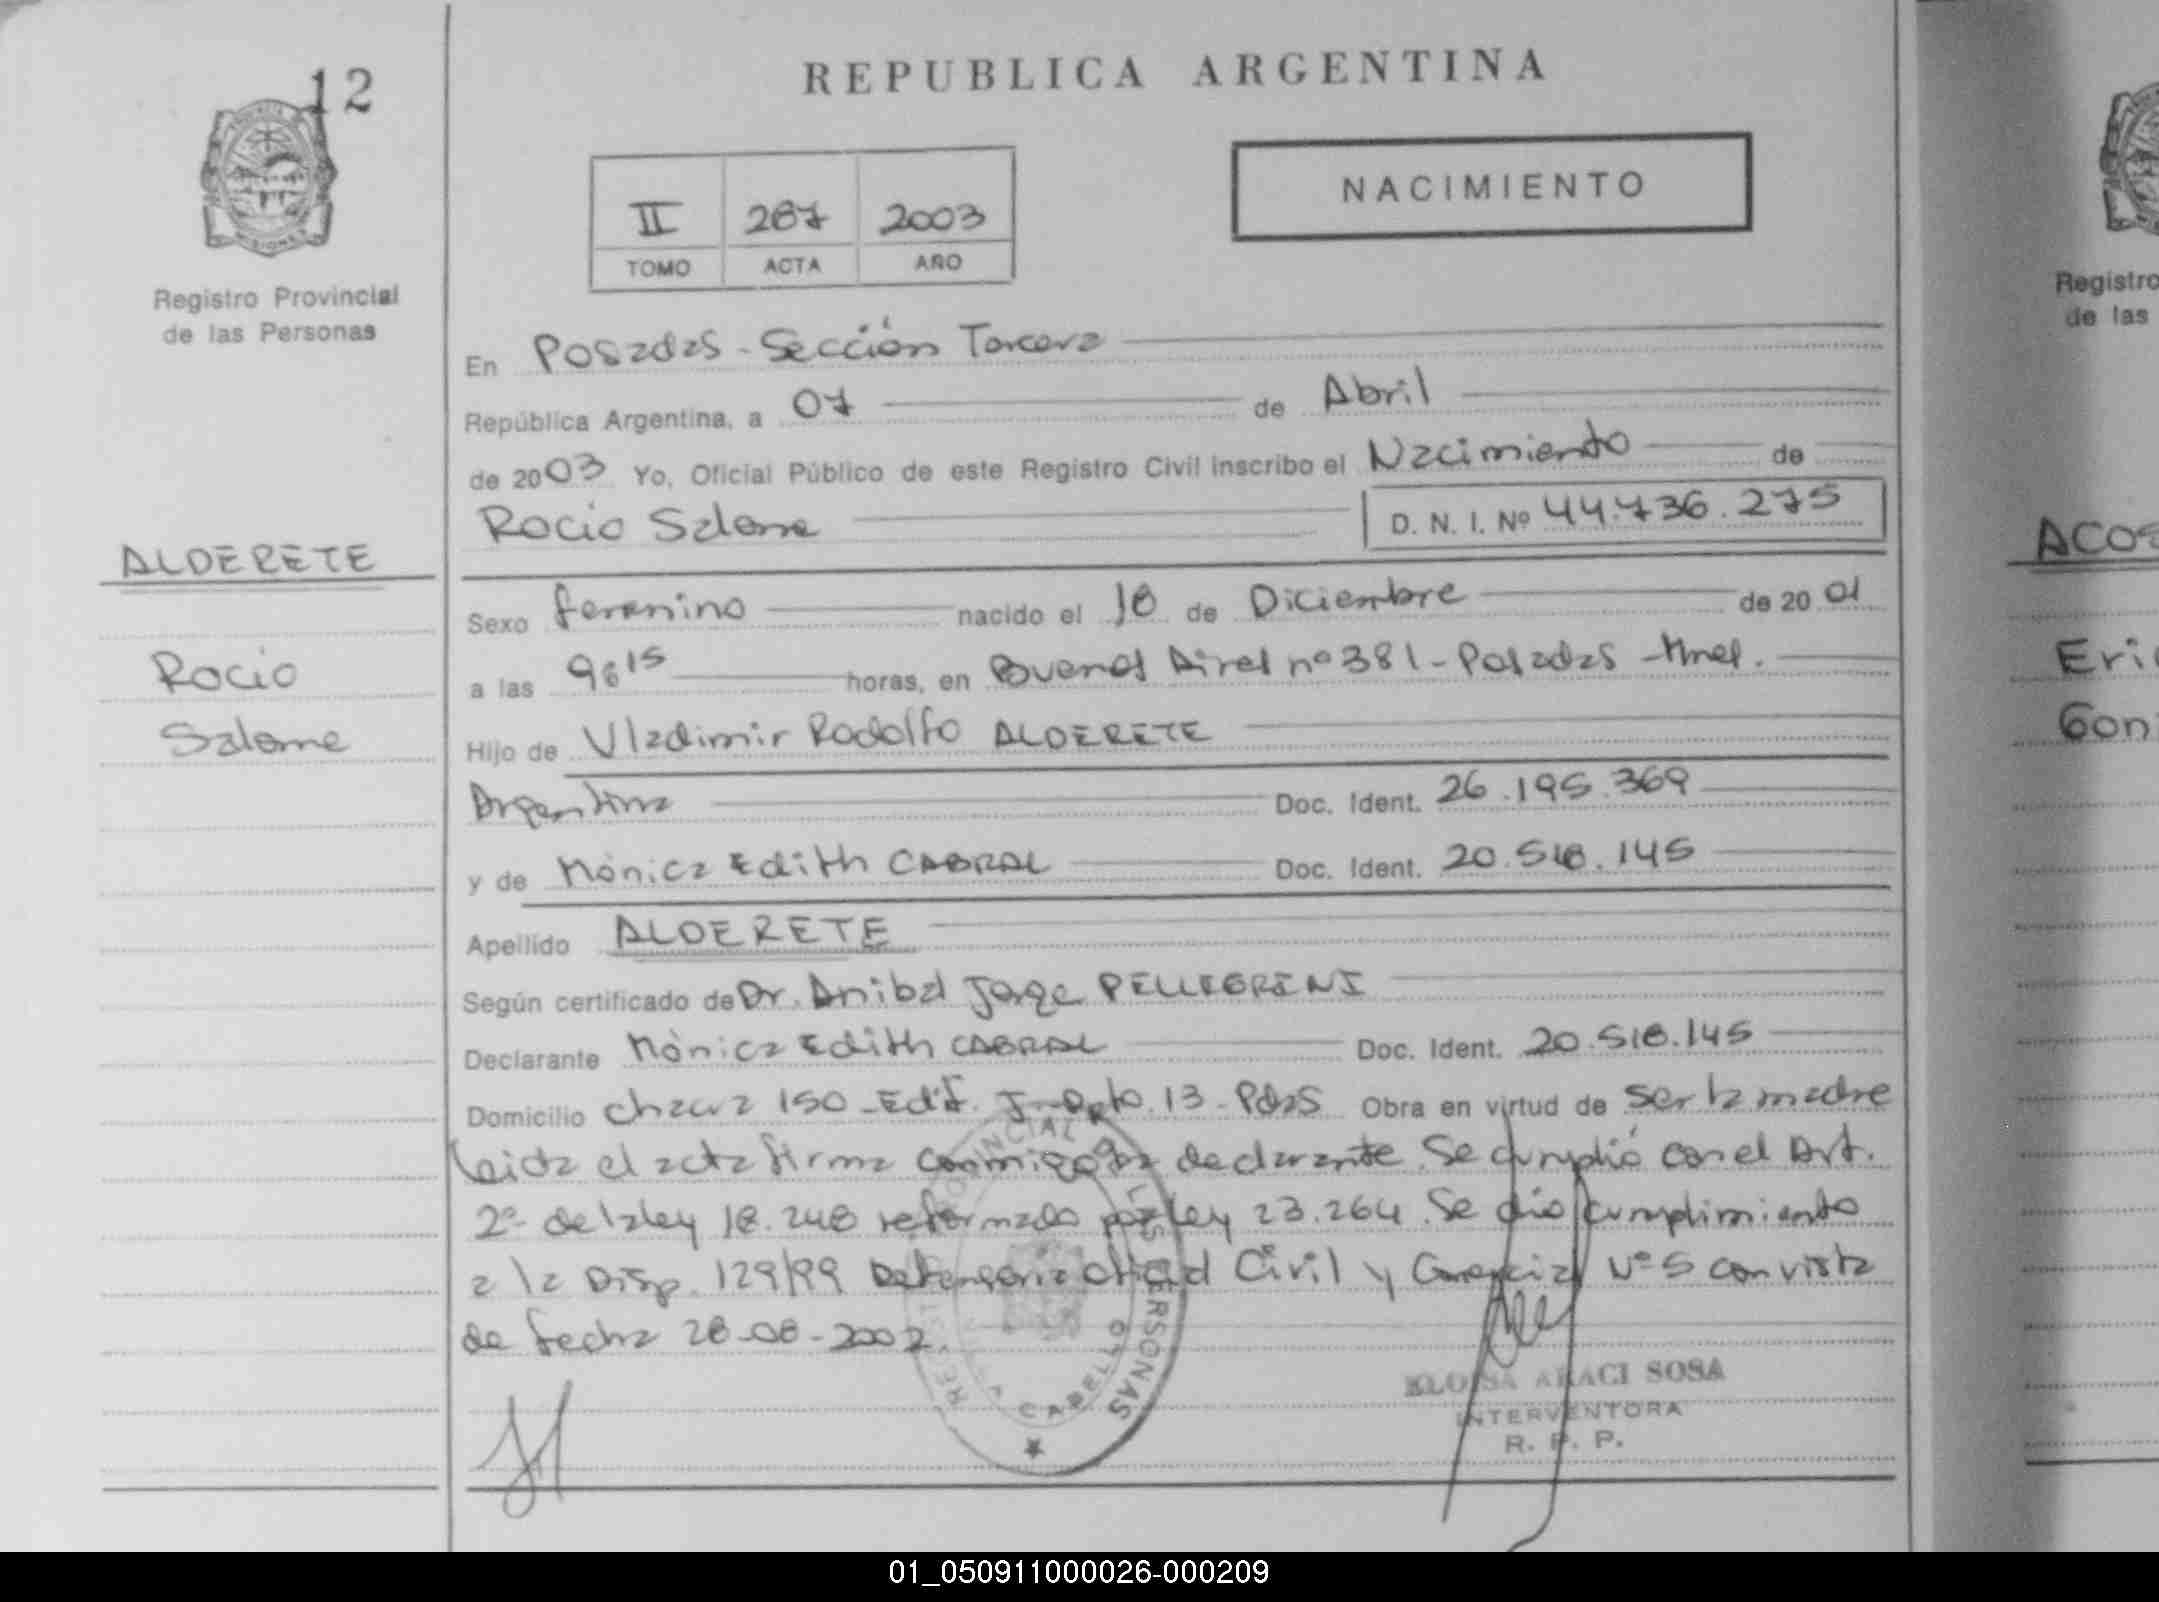 12
REPUBLICA ARGENTINA
NACIMIENTO
II 287 2003
TOMO ACTA AÑO
Registro Provincial
de las Personas
En Posadas - Sección Tercera
República Argentina, a 07 de Abril
de 2003 Yo, Oficial Público de este Registro Civil inscribo el Nacimiento de
Rocio Salome D. N. I. Nº 44.736.275
ALDERETE
Rocio
Salome
Sexo femenino nacido el 18 de Diciembre de 20 01
a las 9:15 horas, en Buenos Aires nº 381 - Posadas - Mnes.
Hijo de Vladimir Rodolfo ALDERETE
Argentina Doc. Ident. 26.195.369
y de Mónica Edith CABRAL Doc. Ident. 20.518.145
Apellido ALDERETE
Según certificado de Dr. Anibal Jorge PELLEGRINI
Declarante Mónica Edith CABRAL Doc. Ident. 20.518.145
Domicilio 150 - Edif. J - Dpto. 13 - Pdas Obra en virtud de ser la madre
leida el acta firma conmigo la declarante. Se cumplió con el Art.
2º de la ley 18.248 reformado por ley 23.264. Se dio cumplimiento
a la Disp. 129/99 Defensoria Oficial Civil y Comercial Nº 5 con vista
de fecha 28-08-2002.
ELOISA ARACI SOSA
INTERVENTORA
R. P. P.
CABELLO
PERSONAS
Registro
de las
ACOS
Eri
Gon
01_050911000026-000209